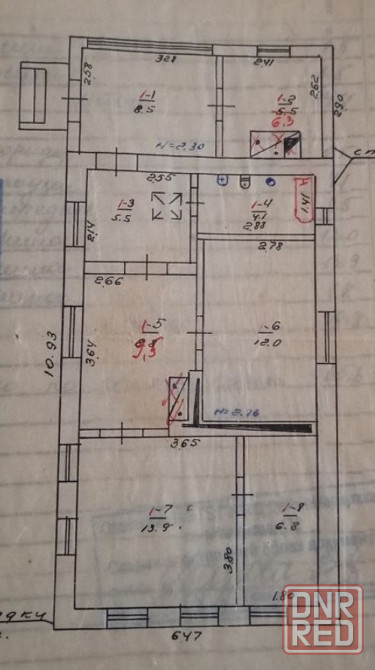 3.28
2.41
2.58
2.62
2.90
1-1
8.5
1-2
5.5
6.3
H=2.30
сп
2.55
1-3
5.5
1-4
4.1
1.41
2.14
2.88
2.78
2.66
1-5
9.3
1-6
12.0
10.93
3.64
H=2.76
3.65
1-7
13.9
1-8
6.8
3.80
1.80
6.47
DNR
RED